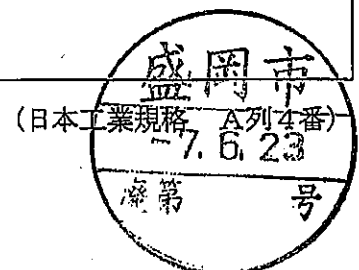 盛岡市
(日本工業規格 A列4番)
-7.6.23
廃第 号